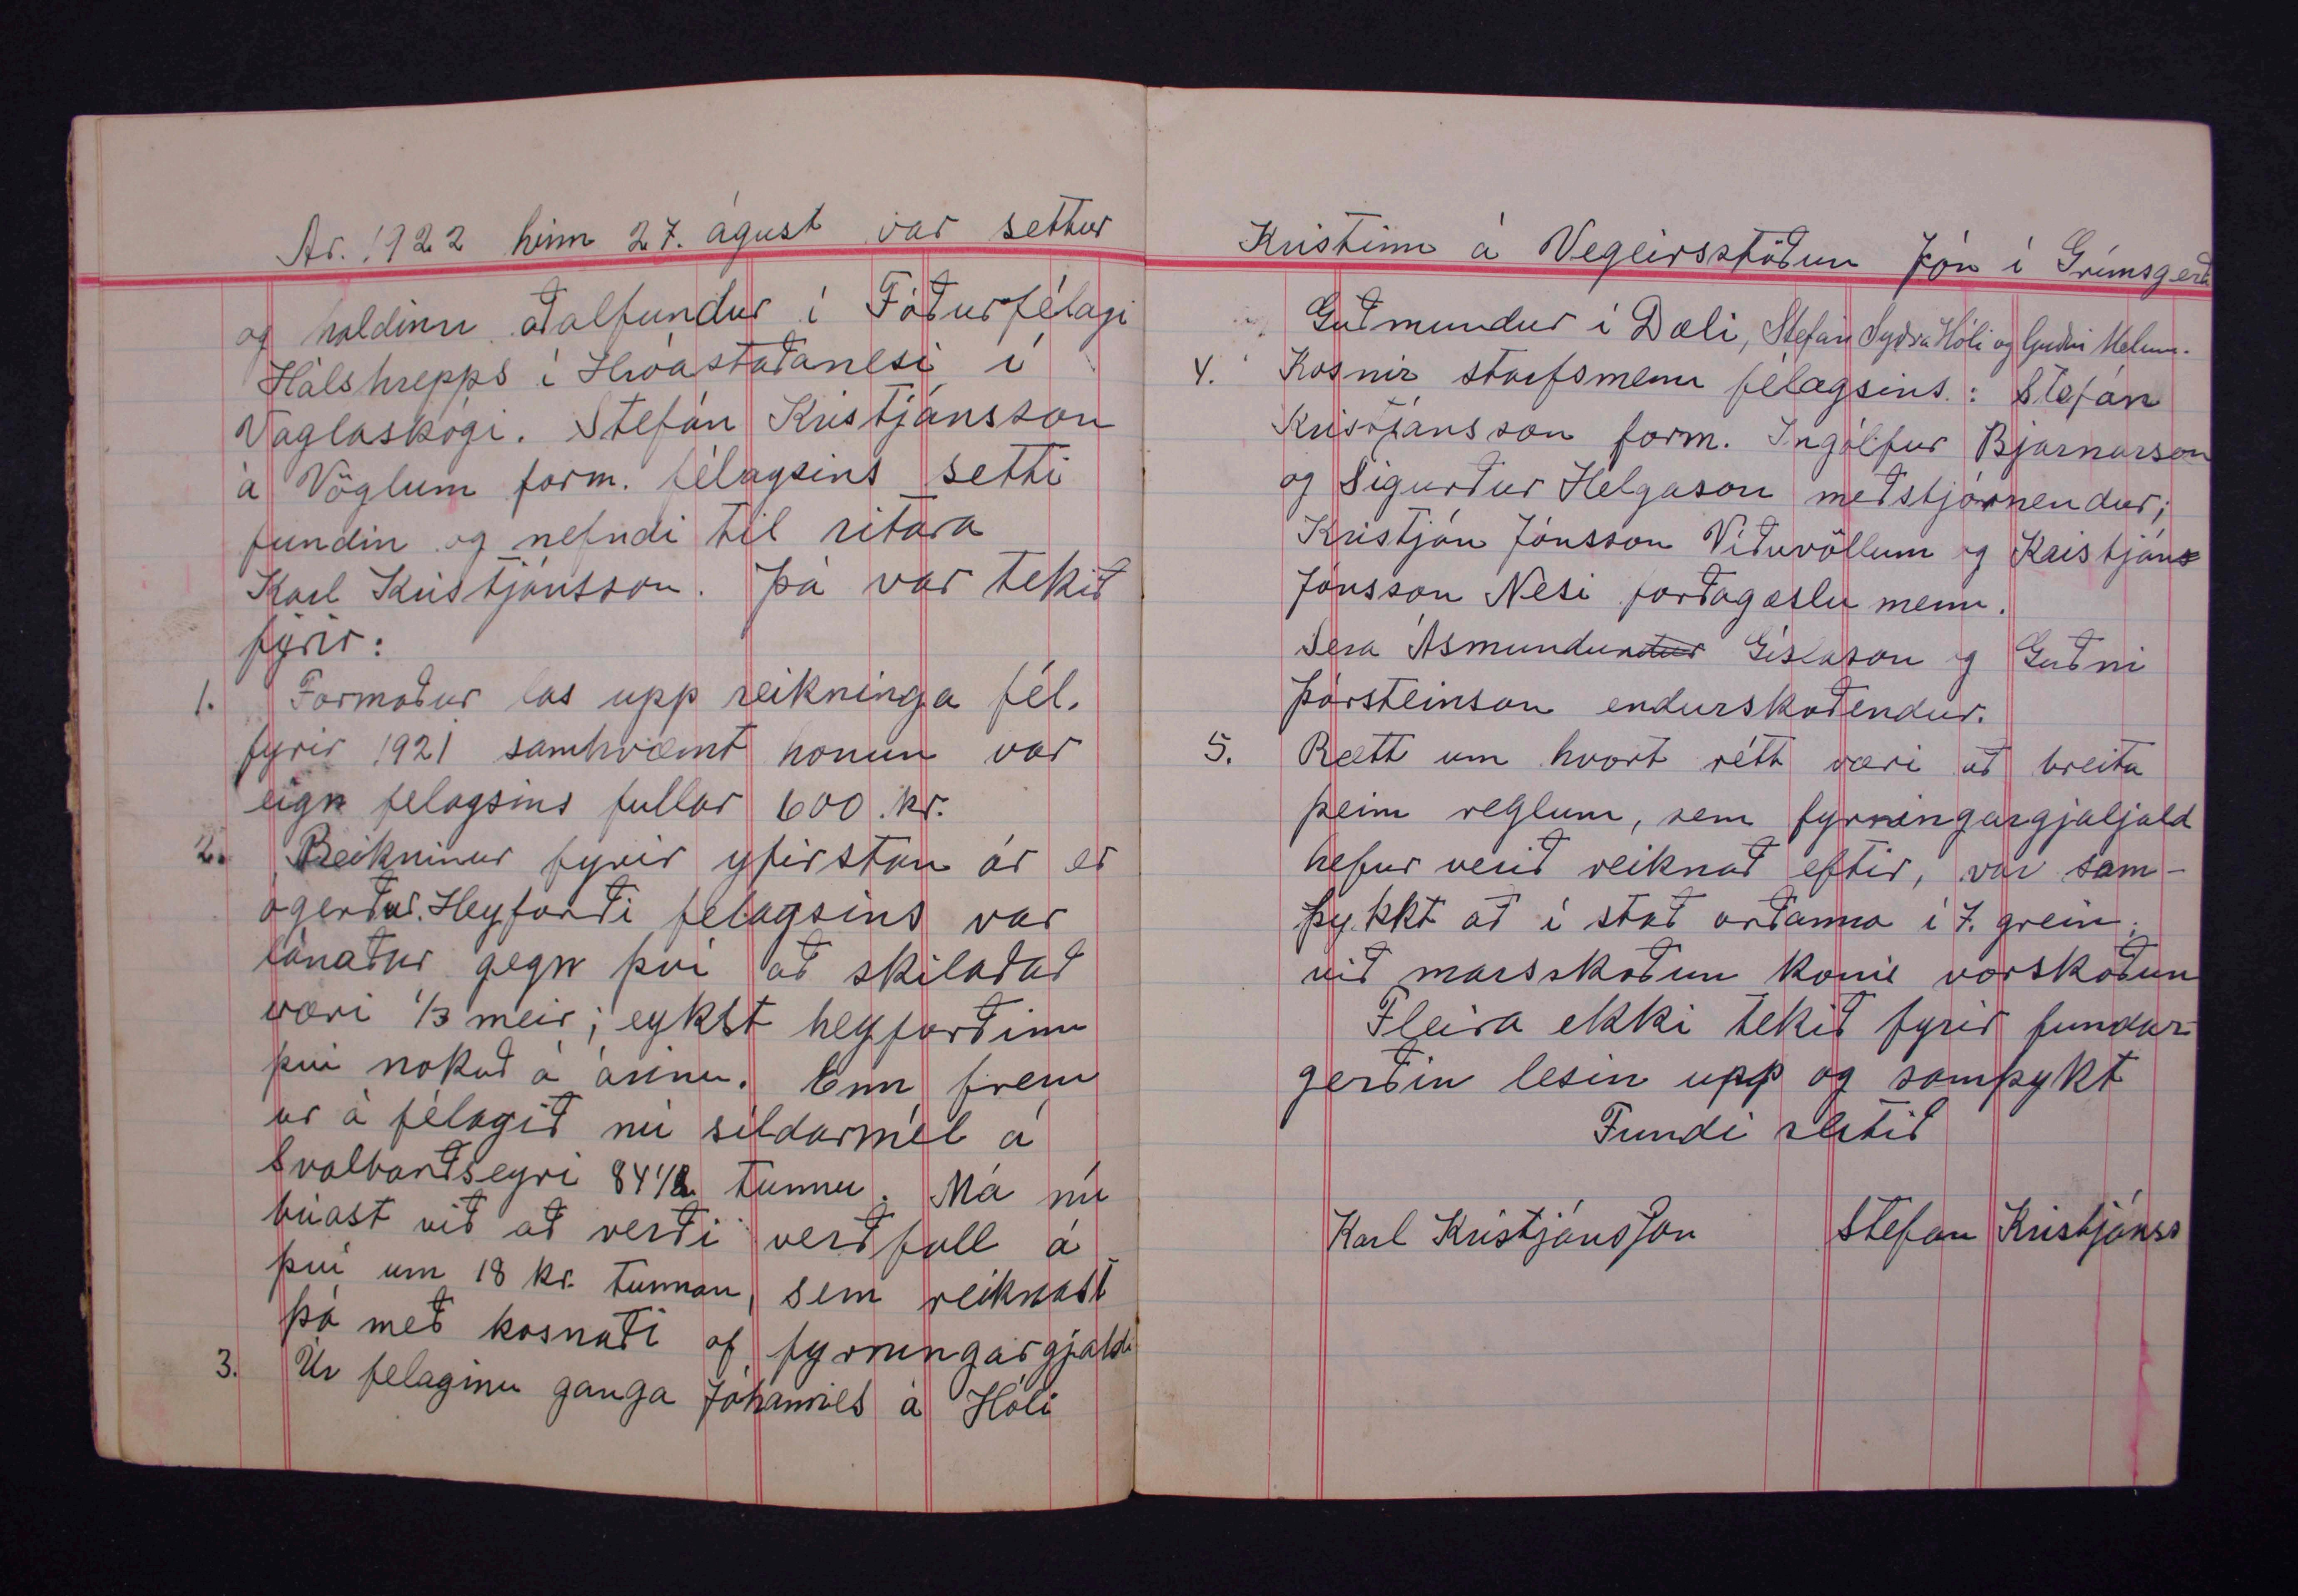 Ár. 1922 hinn 27. ágúst var settur
og haldinn aðalfundur í Fóðurfélagi
Hálshrepps í Hróastaðanesi í
Vaglaskógi. Stefán Kristjánsson
á Vöglum form. félagsins setti
fundin og nefndi til ritara
Karl Kristjánsson. Þá var tekið
fyrir:
1. Formaður las upp reikninga fél.
fyrir 1921 samhvæmt honum var
eign felagsins fullar 600 kr.
2. Reikninur fyrir yfirstan ár er
ógerður. Heyforði félagsins var
lánaður gegn því að skilað að
væri 1/3 meir; eykst heyforðinn
því nokuð á árinu. Enn frem
ur á félagið nú síldarmél á
Svalbarðseyri 84 1/2 tunnu. Má nú
búast við að verði verðfall á
því um 18 kr. tunnan, sem reiknast
þá með kosnaði af fyrningargjaldi
3. Úr felaginu ganga Jóhannes á Hóli
Kristinn á Vegeirsstöðum Jón í Grímsgerði
Guðmundur í Dæli, Stefán Syðra Hóli og Guðni Melum.
4. Kosnir starfsmenn félagsins: Stefán
Kristjánsson form. Ingólfur Bjarnarson
og Sigurður Helgason meðstjórnendur;
Kristján Jónsson Víðuvöllum og Kristján
Jónsson Nesi forðagæslu menn.
Sera Ásmundur Gíslason og Guðni
Þorsteinson endurskoðendur.
5. Rætt um hvort rétt væri að breita
þeim reglum, sem fyrningargjaljald
hefur verið reiknað eftir, var sam-
þykkt að í stað orðanna í 7. grein.
við marsskoðun komi vorskoðun
Fleira ekki tekið fyrir fundar-
gerðin lesin upp og samþykt
Fundi slitið
Karl Kristjánsson Stefan Kristjánss